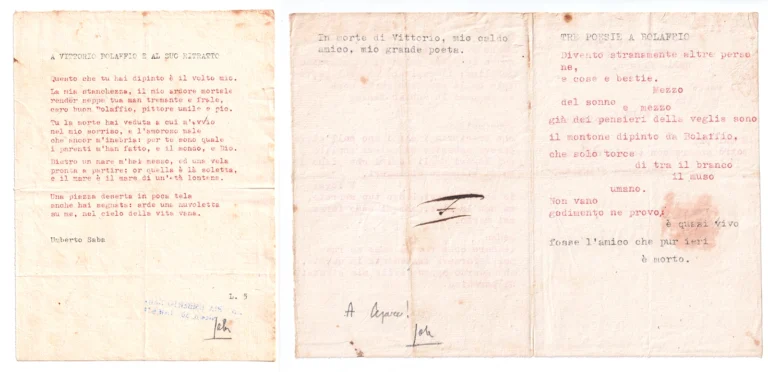 A VITTORIO BOLAFFIO E AL SUO RITRATTO
Questo che tu hai dipinto è il volto mio.
La mia stanchezza, il mio amore mortale
render seppe tua man tremante e frale,
caro buon Bolaffio, pittore umile e pio.
Tu la morte hai veduta a cui m'avvio
nel mio sorriso, e l'amoroso male
che ancor m'inebria: per te sono quale
i parenti m'han fatto, e il senso, e Dio.
Dietro un mare m'hai messo, ed una vela
pronta a partire: or quella è là soletta,
e il mare è il mare di un'età lontana.
Una piazza deserta in poca tela
anche hai segnata: arde una nuvoletta
su me, nel cielo della vita vana.
Umberto Saba
L. 5
Saba
In morte di Vittorio, mio caldo
amico, mio grande poeta.
A
Saba
TRE POESIE A BOLAFFIO
Divento stranamente altre perso
ne,
e cose e bestie.
Mezzo
del sonno
e mezzo
già dei pensieri della veglia sono
il montone dipinto da Bolaffio,
che solo torce
di tra il branco
il muso
umano.
Non vano
godimento ne provo;
è quasi vivo
fosse l'amico che pur ieri
è morto.